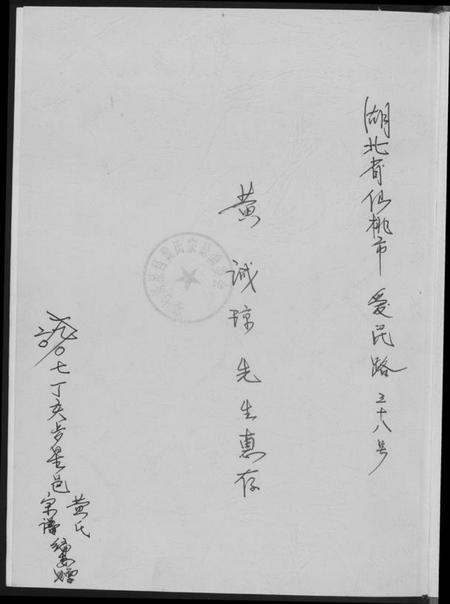 湖北省仙桃市爱民路三十八号
黄诚琼先生惠存
二00七丁亥岁星邑
黄氏
宗谱编委赠